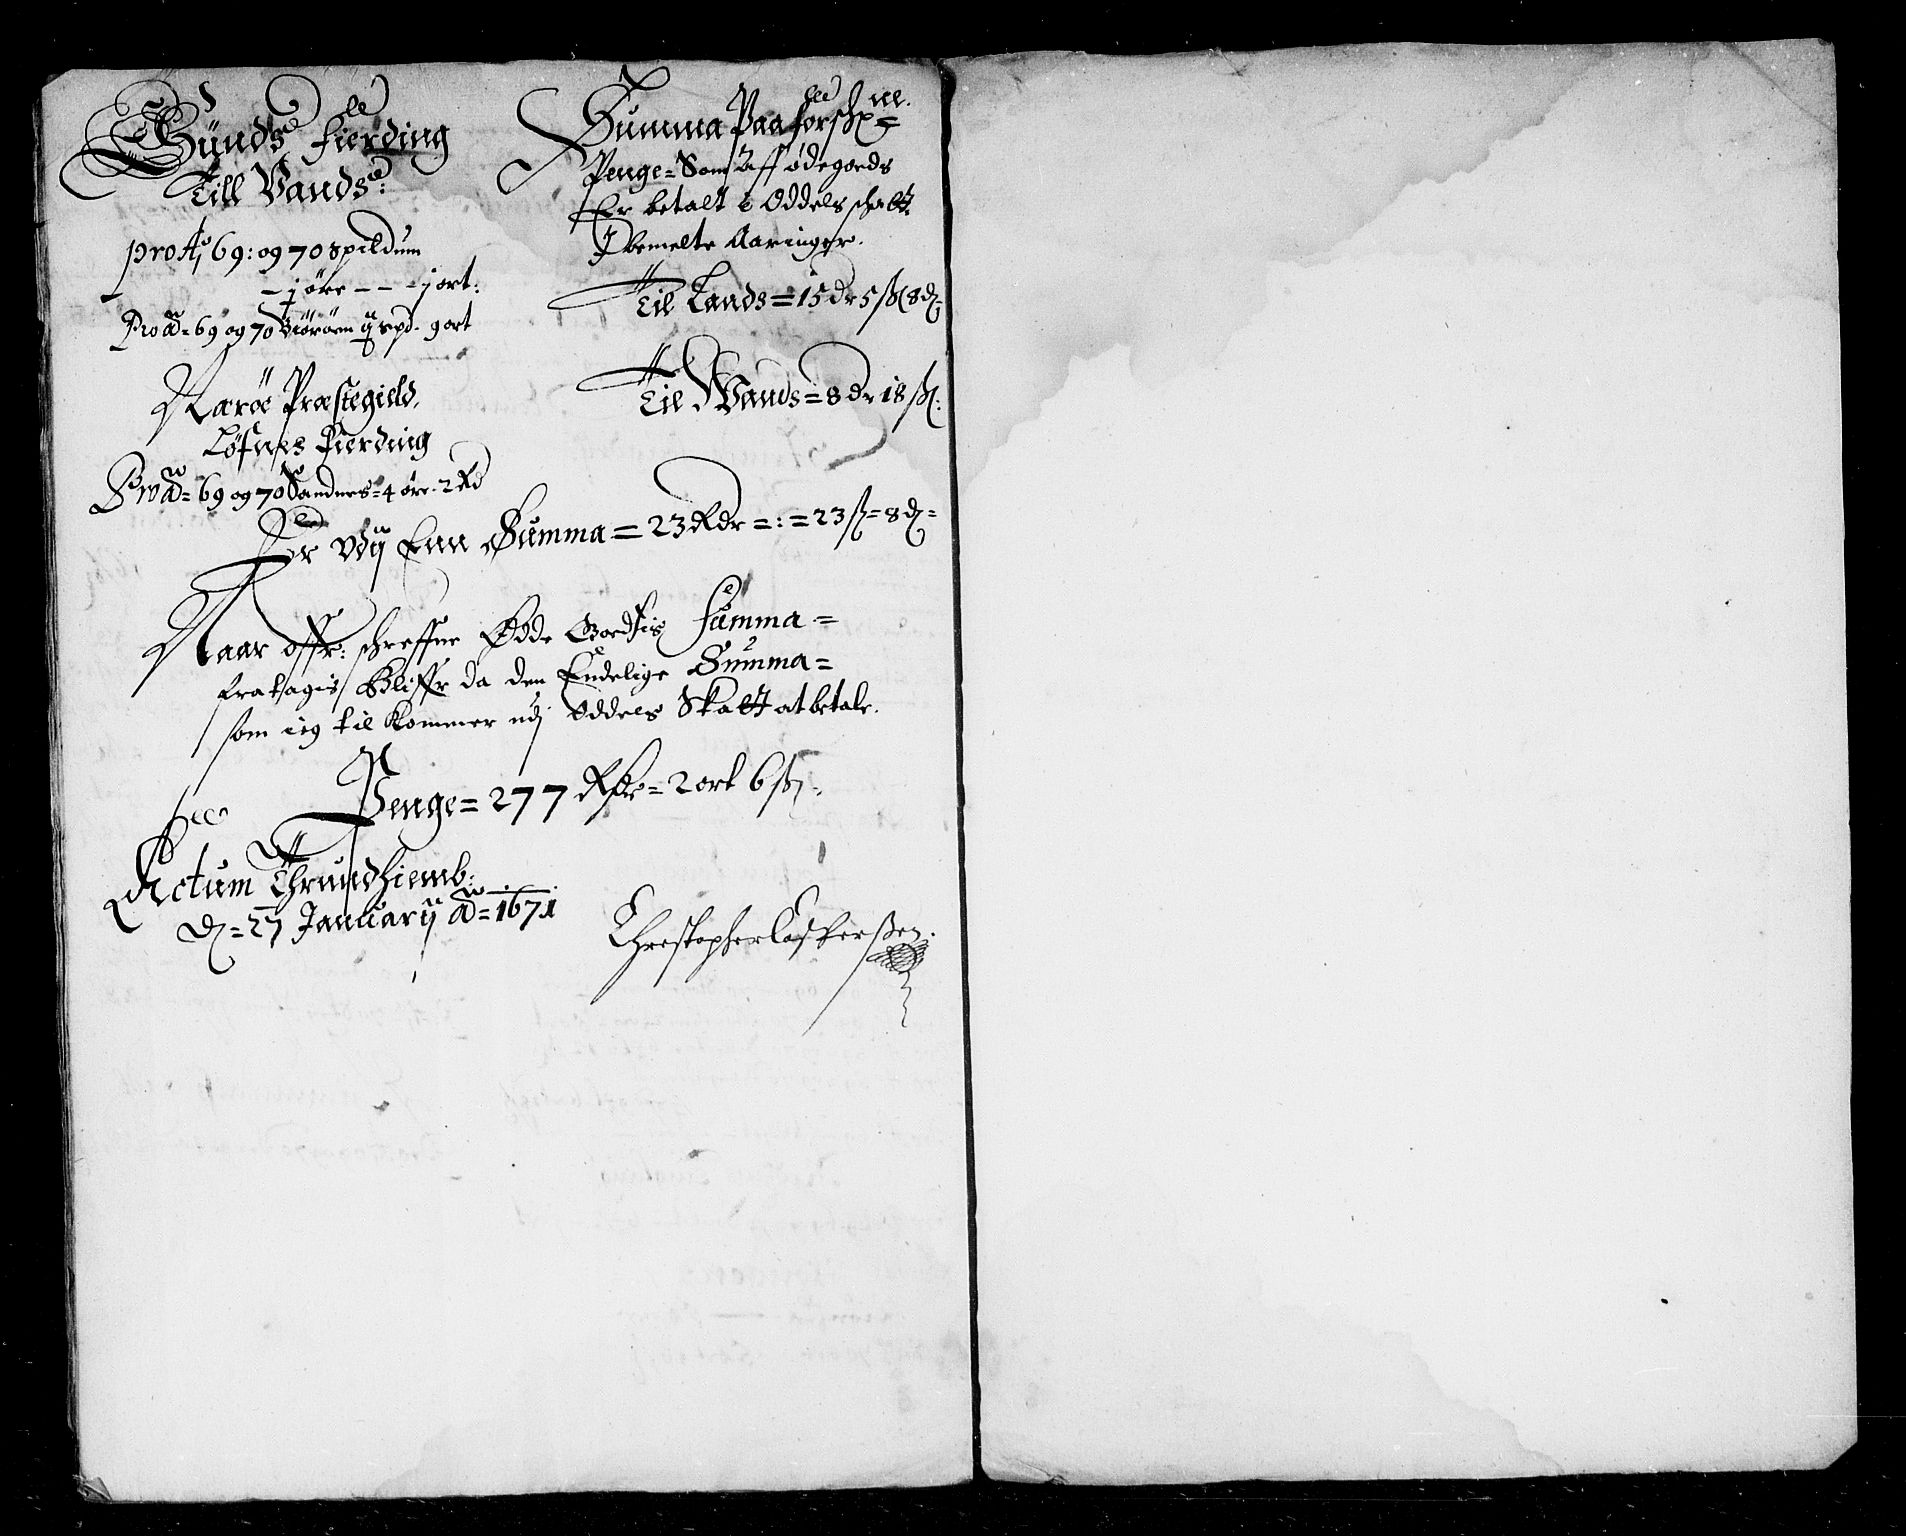 Sünds fierding
Till Vands:
pro Ao 69: og 70 Spildum
- j øre - - - j ort:
Pro ao = 69 og 70 Biöröen ij spd. 9 ort
Naröe Præstegield.
Løfnes Fierding
Pro ao = 69 og 70 Sandnes = 4 øre. 2 Rd
Summa Paa forschr =
Penge = Som Aff ødegords
Er betalt i Oddels schatt.
I bemelte Aaringer.
Til Lands = 15 dr 5 ß 8 d =
Til Vands = 8 dr 18 ß:
Er Udj Enn Summa = 23 Rdr = : = 23 ß = 8 d =
Naar offr: schreffne Øde Gordfis Summa =
fratagis Bliffr da den Endelige Summa =
som ieg til kommer udj Oddels Skatt at betale.
Penge = 277 Rdr = 2 ort 6 ß.
Actum Thrundhiemb:
D = 27 Januarij ao = 1671
Chrestopher Casperßen.